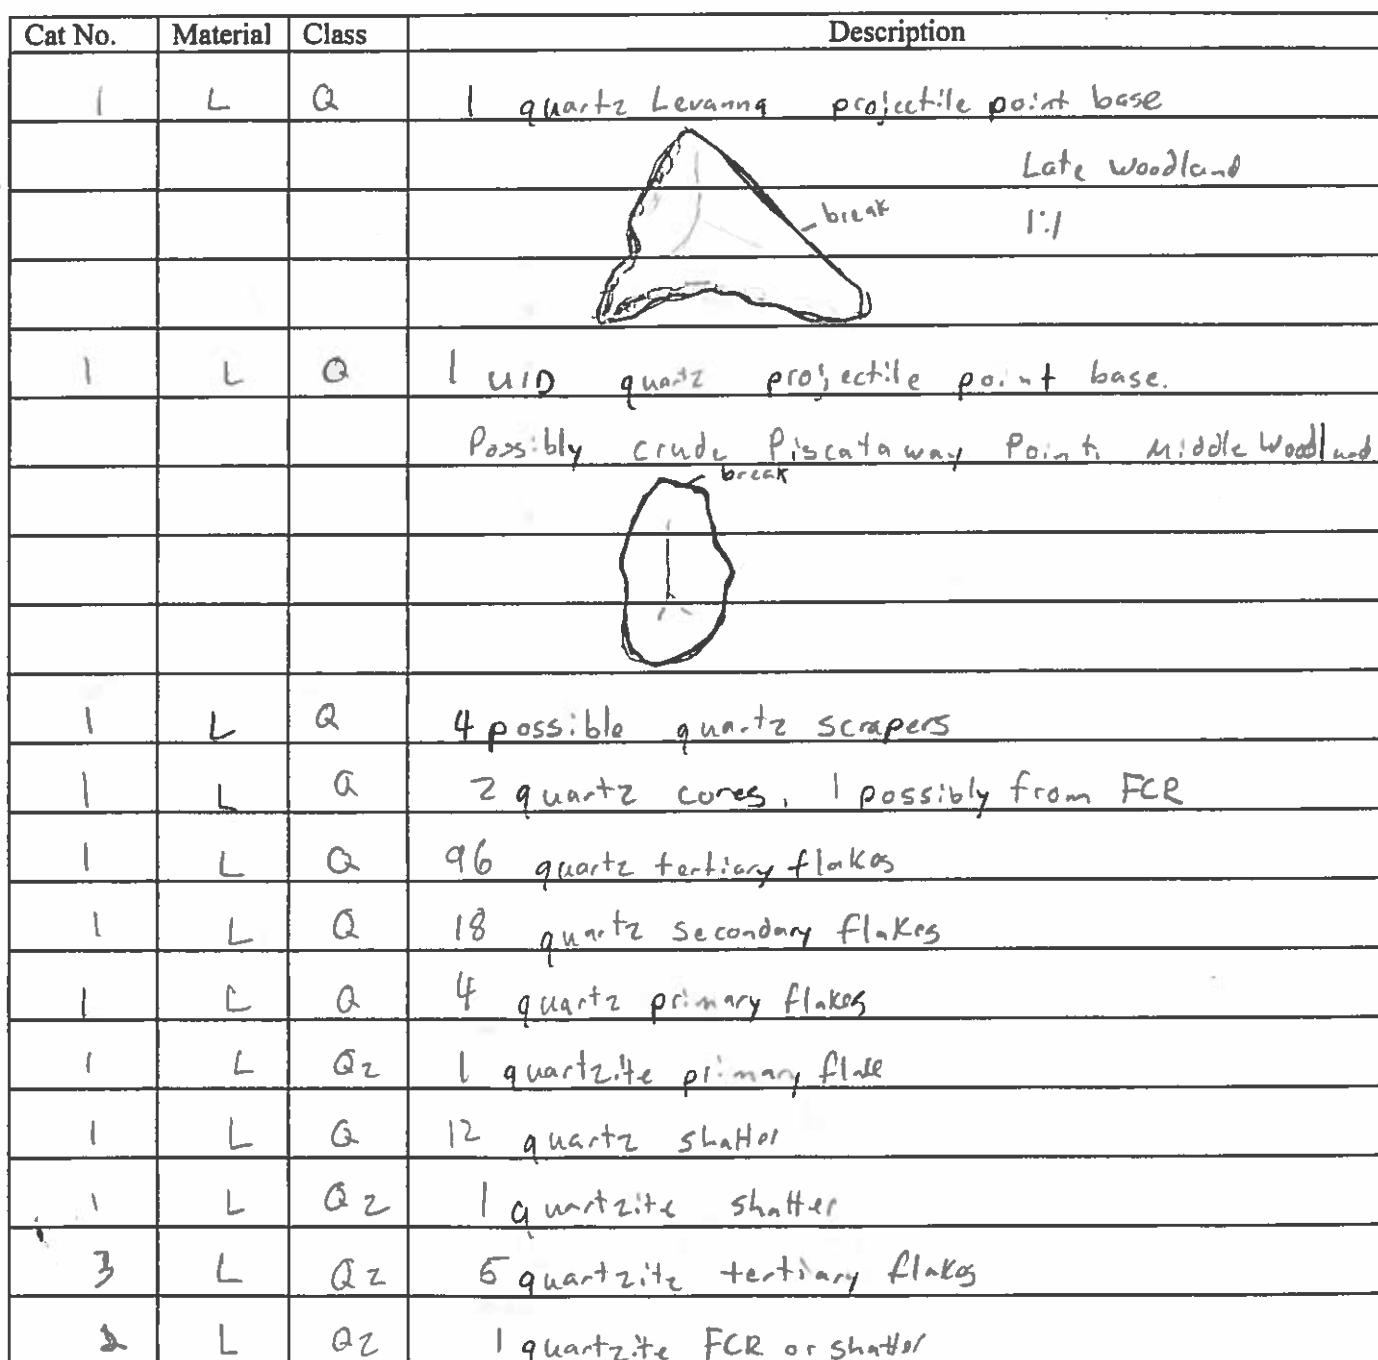 Cat No. Material Class Description
1 L Q 1 quartz Levanna projectile point base
Late Woodland
break 1:1
1 L Q 1 UID quartz projectile point base.
Possibly crude Piscataway Point. Middle Woodland
break
1 L Q 4 possible quartz scrapers
1 L Q 2 quartz cores, 1 possibly from FCR
1 L Q 96 quartz tertiary flakes
1 L Q 18 quartz secondary flakes
1 L Q 4 quartz primary flakes
1 L Qz 1 quartzite primary flake
1 L Q 12 quartz shatter
1 L Qz 1 quartzite shatter
3 L Qz 5 quartzite tertiary flakes
L Qz 1 quartzite FCR or shatter